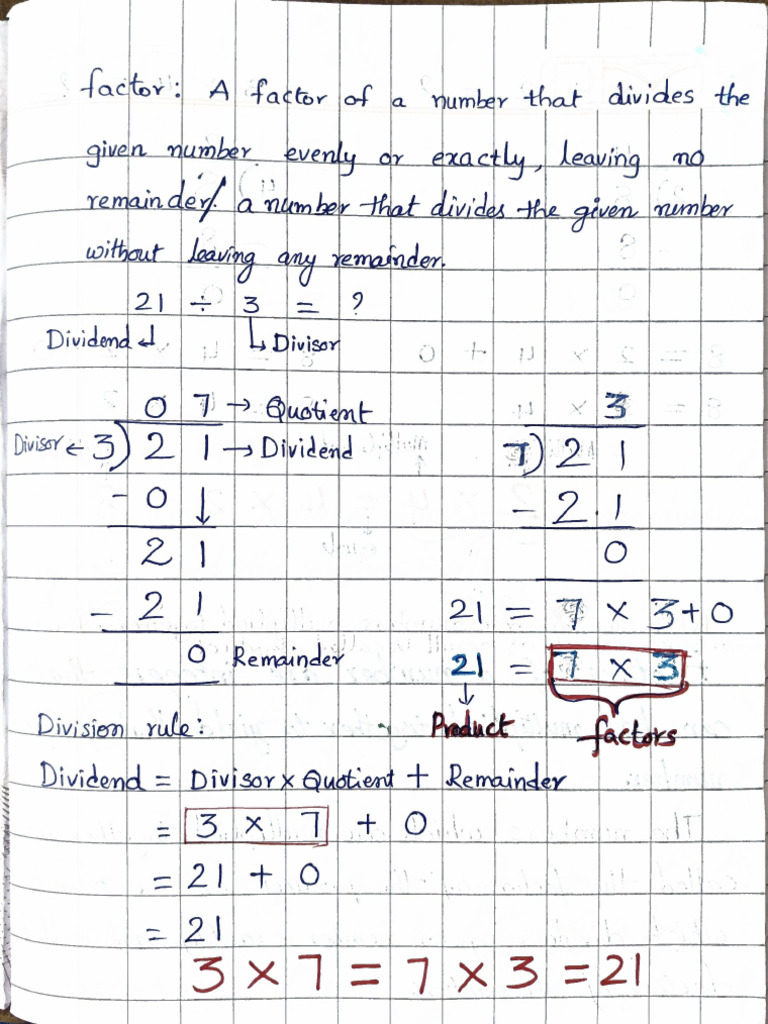 factor: A factor of a number that divides the
given number evenly or exactly, leaving no
remainder/. a number that divides the given number
without leaving any remainder.
21 ÷ 3 = ?
Dividend ↲ ↳ Divisor
0 7 → Quotient
Divisor ← 3) 2 1 → Dividend
- 0 ↓
2 1
- 2 1
0 Remainder
3
7) 2 1
- 2.1
0
21 = 7 × 3 + 0
21 = 7 × 3
↓
Product factors
Division rule:
Dividend = Divisor × Quotient + Remainder
= 3 × 7 + 0
= 21 + 0
= 21
3 × 7 = 7 × 3 = 21